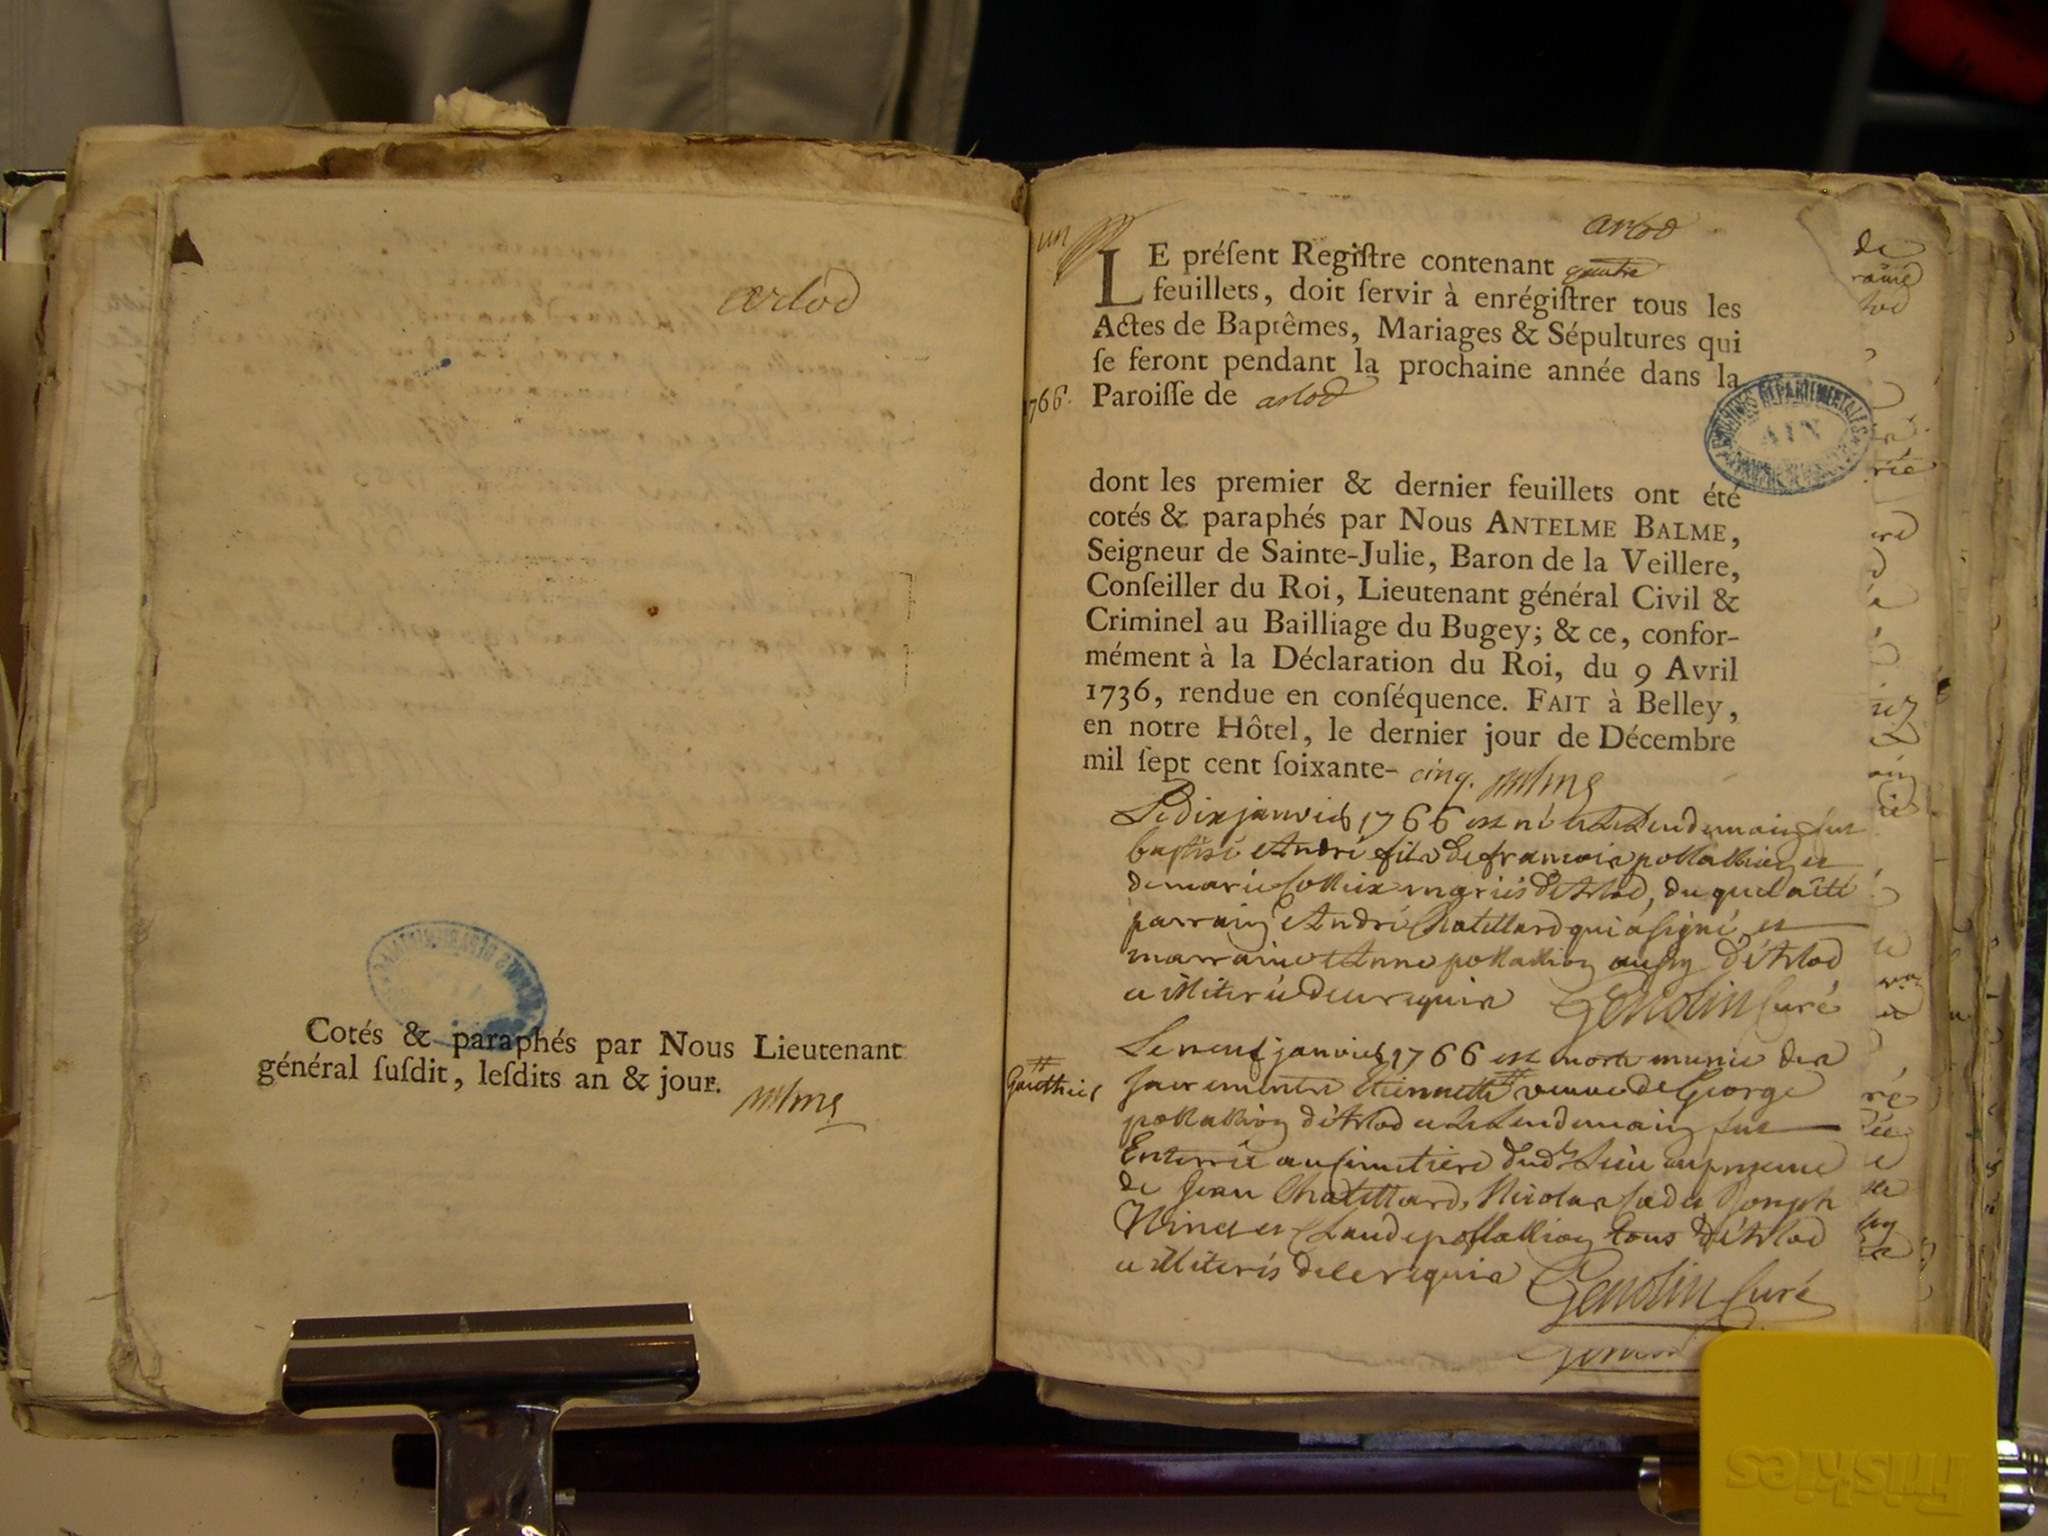 arlod
Cotés & paraphés par Nous Lieutenant
général suſdit, leſdits an & jour.
un
arlod
LE préſent Regiſtre contenant quatre
feuillets, doit ſervir à enrégiſtrer tous les
Actes de Baptêmes, Mariages & Sépultures qui
ſe feront pendant la prochaine année dans la
1766. Paroiſſe de arlod
ARCHIVES DÉPARTEMENTALES
AIN
dont les premier & dernier feuillets ont été
cotés & paraphés par Nous ANTELME BALME,
Seigneur de Sainte-Julie, Baron de la Veillere,
Conſeiller du Roi, Lieutenant général Civil &
Criminel au Bailliage du Bugey; & ce, confor-
mément à la Déclaration du Roi, du 9 Avril
1736, rendue en conſéquence. FAIT à Belley,
en notre Hôtel, le dernier jour de Décembre
mil ſept cent ſoixante- cinq.
Le dix janvier 1766 est né et le Lendemain fut
baptisé André fils de francois pollallion et
de marie Collix mariés d'Arlod, du quel a été
parrain André Chatillard qui a signé et
marraine Anne pollallion aussy d'Arlod
et illiterée de ce requise Genolin Curé
Le neuf janvier 1766 est morte munie des
Gauthier sacrements Etiennette # veuve de George
pollallion d'Arlod et le Lendemain fut
Enterrée au Cimetiere dudt Lieu en presence
de Jean Chatillard, Nicolas Joseph
et Claude pollallion tous d'Arlod
et illiterés de ce requis Genolin Curé
friskies